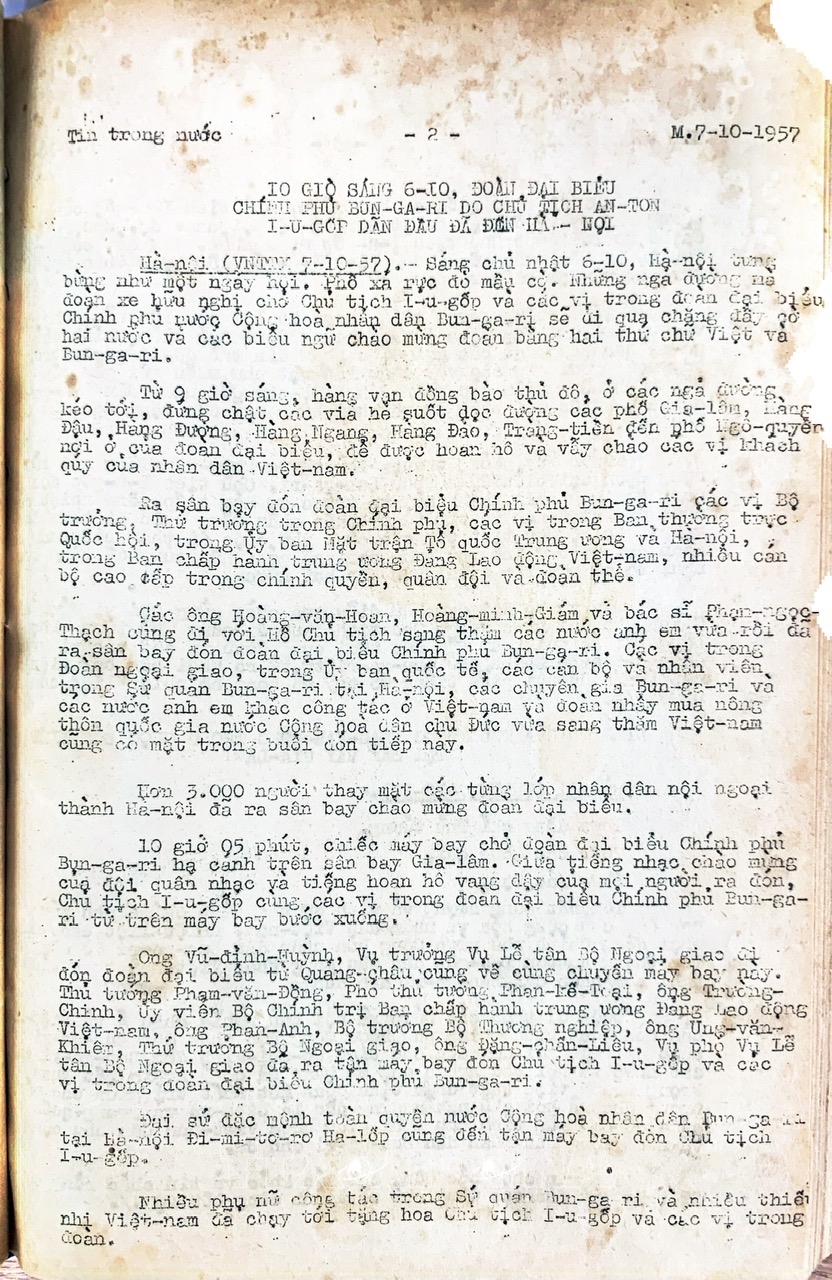 Tin trong nước - 2 - M.7-10-1957
10 GIỜ SÁNG 6-10, ĐOÀN ĐẠI BIỂU
CHÍNH PHỦ BUN-GA-RI DO CHỦ TỊCH AN-TON
I-U-GỐP DẪN ĐẦU ĐÃ ĐẾN HÀ - NỘI
Hà-nội (VNTTX 7-10-57).- Sáng chủ nhật 6-10, Hà-nội tưng
bừng như một ngày hội. Phố xá rực đỏ mầu cờ. Những ngả đường mà
đoàn xe hữu nghị chở Chủ tịch I-u-gốp và các vị trong đoàn đại biểu
Chính phủ nước Cộng hoà nhân dân Bun-ga-ri sẽ đi qua chăng đầy cờ
hai nước và các biểu ngữ chào mừng đoàn bằng hai thứ chữ Việt và
Bun-ga-ri.
Từ 9 giờ sáng, hàng vạn đồng bào thủ đô, ở các ngả đường
kéo tới, đứng chật các vỉa hè suốt dọc đường các phố Gia-lâm, Hàng
Đậu, Hàng Đường, Hàng Ngang, Hàng Đào, Tràng-tiền đến phố Ngô-quyền
nơi ở của đoàn đại biểu, để được hoan hô và vẫy chào các vị khách
quý của nhân dân Việt-nam.
Ra sân bay đón đoàn đại biểu Chính phủ Bun-ga-ri các vị Bộ
trưởng, Thứ trưởng trong Chính phủ, các vị trong Ban thường trực
Quốc hội, trong Ủy ban Mặt trận Tổ quốc Trung ương và Hà-nội,
trong Ban chấp hành trung ương Đảng Lao động Việt-nam, nhiều cán
bộ cao cấp trong chính quyền, quân đội và đoàn thể.
Các ông Hoàng-văn-Hoan, Hoàng-minh-Giám và bác sĩ Phạm-ngọc-
Thạch cùng đi với Hồ Chủ tịch sang thăm các nước anh em vừa rồi đã
ra sân bay đón đoàn đại biểu Chính phủ Bun-ga-ri. Các vị trong
Đoàn ngoại giao, trong Ủy ban quốc tế, các cán bộ và nhân viên
trong Sứ quán Bun-ga-ri tại Hà-nội, các chuyên gia Bun-ga-ri và
các nước anh em khác công tác ở Việt-nam và đoàn nhảy múa nông
thôn quốc gia nước Cộng hoà dân chủ Đức vừa sang thăm Việt-nam
cũng có mặt trong buổi đón tiếp này.
Hơn 3.000 người thay mặt các từng lớp nhân dân nội ngoại
thành Hà-nội đã ra sân bay chào mừng đoàn đại biểu.
10 giờ 05 phút, chiếc máy bay chở đoàn đại biểu Chính phủ
Bun-ga-ri hạ cánh trên sân bay Gia-lâm. Giữa tiếng nhạc chào mừng
của đội quân nhạc và tiếng hoan hô vang dậy của mọi người ra đón,
Chủ tịch I-u-gốp cùng các vị trong đoàn đại biểu Chính phủ Bun-ga-
ri từ trên máy bay bước xuống.
Ông Vũ-đình-Huỳnh, Vụ trưởng Vụ Lễ tân Bộ Ngoại giao đi
đón đoàn đại biểu từ Quảng-châu cùng về cùng chuyến máy bay này.
Thủ tướng Phạm-văn-Đồng, Phó thủ tướng Phan-kế-Toại, ông Trường-
Chinh, Ủy viên Bộ Chính trị Ban chấp hành trung ương Đảng Lao động
Việt-nam, ông Phan-Anh, Bộ trưởng Bộ Thương nghiệp, ông Ung-văn-
Khiêm, Thứ trưởng Bộ Ngoại giao, ông Đặng-chấn-Liêu, Vụ phó Vụ Lễ
tân Bộ Ngoại giao đã ra tận máy bay đón Chủ tịch I-u-gốp và các
vị trong đoàn đại biểu Chính phủ Bun-ga-ri.
Đại sứ đặc mệnh toàn quyền nước Cộng hoà nhân dân Bun-ga-ri
tại Hà-nội Đi-mi-tơ-rơ Ha-lốp cũng đến tận máy bay đón Chủ tịch
I-u-gốp.
Nhiều phụ nữ công tác trong Sứ quán Bun-ga-ri và nhiều thiếu
nhi Việt-nam đã chạy tới tặng hoa Chủ tịch I-u-gốp và các vị trong
đoàn.